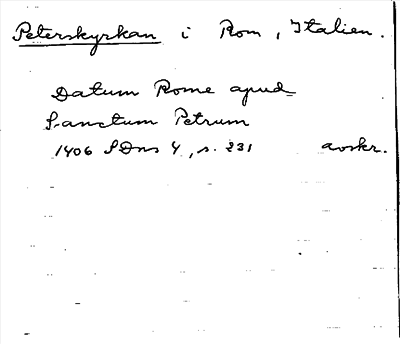 Peterskyrkan i Rom, Italien.
Datum Rome apud
Sanctum Petrum
1406 SDns 4, s. 231 avskr.